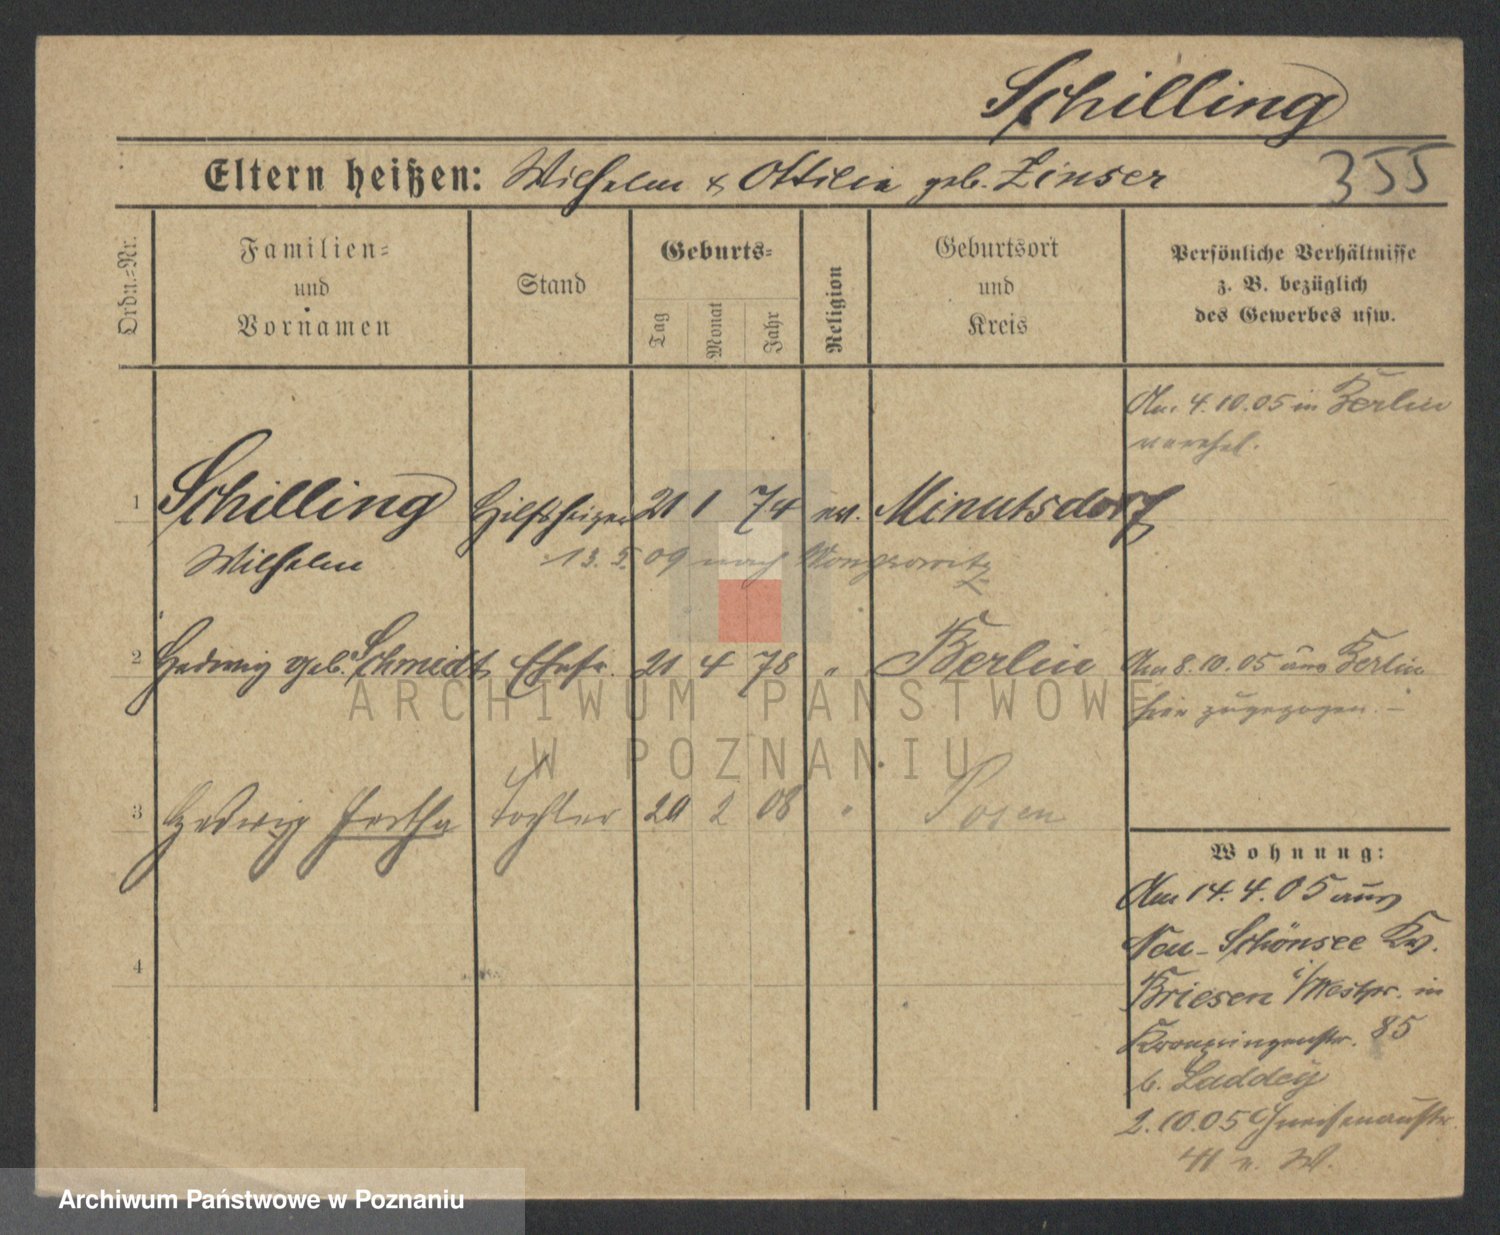 Schilling
Eltern heißen: Wilhelm & Ottilie geb. Zinser 355
Ordn.=Nr.
Familien=
und
Vornamen
Stand
Geburts=
Tag
Monat
Jahr
Religion
Geburtsort
und
Kreis
Persönliche Verhältnisse
z. B. bezüglich
des Gewerbes usw.
Am 4.10.05 in Berlin
verehel.
1 Schilling Hilfsheizer 21 1 74 ev. Minutsdorf
Wilhelm
13.5.09 nach Wongrowitz
2 Hedwig geb. Schmidt Ehefr. 21 4 78 " " Berlin
Am 8.10.05 aus Berlin
hier zugezogen. –
3 Hedwig Hertha Tochter 20 2 08 " Posen
4
Wohnung:
Am 14.4.05 aus
Neu-Schönsee Kr.
Briesen i/Westpr. in
Kronprinzenstr. 85
b. Laddey
2.10.05 Gneisenaustr.
41 n. W.
ARCHIWUM PAŃSTWOWE
W POZNANIU
Archiwum Państwowe w Poznaniu